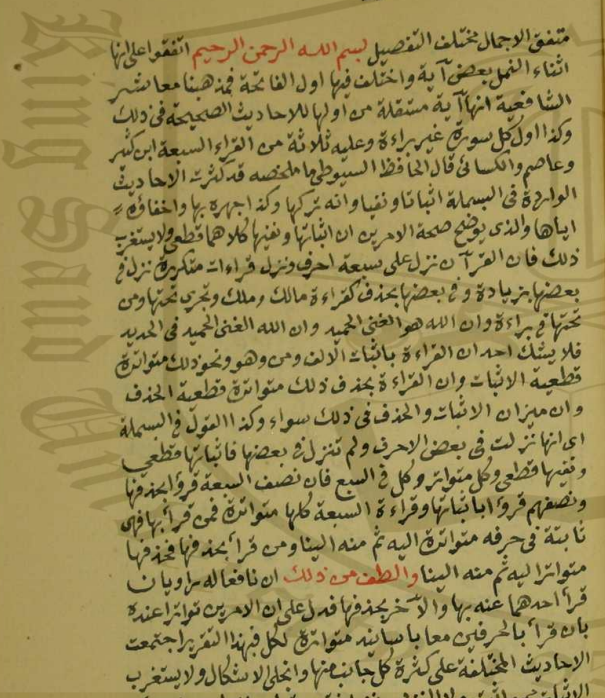 متفق الاجمال مختلف التفصيل بسم الله الرحمن الرحيم اتفقوا على انها
اثناء النمل بعض آية واختلف فيها اول الفاتحة فمذهبنا معاشر
الشافعية انها آية مستقلة من اولها للاحاديث الصحيحة في ذلك
وكذا اول كل سورة غير براءة وعليه ثلاثة من القراء السبعة ابن كثير
وعاصم والكسائي قال الحافظ السيوطي ما ملخصه قد كثرت الاحاديث
الواردة في البسملة اثباتا ونفيا وانه تركها وكذا جهره بها واخفاؤه
اياها والذي يوضح صحة الامرين ان اثباتها ونفيها كلاهما قطعي ولا يستغرب
ذلك فان القرآن نزل على سبعة احرف ونزل قراءات متكررة نزل في
بعضها بزيادة وفي بعضها بحذف كقراءة مالك وملك وتجري تحتها ومن
تحتها في براءة وان الله هو الغني الحميد وان الله الغني الحميد في الحديد
فلا يشك احد ان القراءة باثبات الالف ومن وهو ونحو ذلك متواترة
قطعية الاثبات وان القراءة بحذف ذلك متواترة قطعية الحذف
وان ميزان الاثبات والحذف في ذلك سواء وكذا القول في البسملة
اي انها نزلت في بعض الاحرف ولم تنزل في بعضها فاثباتها قطعي
ونفيها قطعي وكل متواتر وكل في السبع فان نصف السبعة قرؤا بحذفها
ونصفهم قرؤا باثباتها وقراءة السبعة كلها متواترة فمن قرأ بها فهي
ثابتة في حرفه متواترة اليه ثم منه الينا ومن قرأ بحذفها فحذفها
متواتر اليه ثم منه الينا والطف من ذلك ان نافعا له راويان
قرأ احدهما عنه بها والآخر بحذفها فدل على ان الامرين تواترا عنده
بان قرأ بالحرفين معا باسانيد متواترة لكل فبهذا التقرير اجتمعت
الاحاديث المختلفة على كثرة كل جانب منها وانجلى الاشكال ولا يستغرب